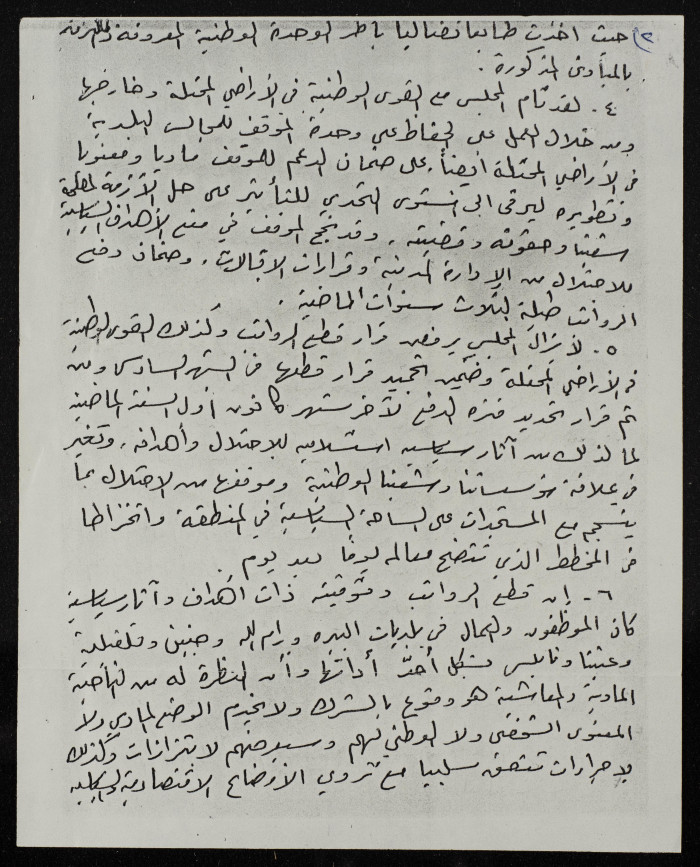 ٢) حيث اخذت طابعا نضاليا باطر الوحدة الوطنية المعروفة والملتزمة
بالمبادئ المذكورة .
٤ . لقد قام المجلس مع القوى الوطنية في الأراضي المحتلة وخارجها
ومن خلال العمل على الحفاظ على وحدة الموقف للمجالس البلدية
في الأراضي المحتلة أيضاً . على ضمان الدعم للموقف ماديا ومعنويا
وتطويره ليرقى الى مستوى التحدي للتأثير على حل الأزمة لمصلحة
شعبنا وحقوقه وقضيته . وقد نجح الموقف في منع الأهداف السياسية
للاحتلال من الإدارة المدنية وقرارات الاقالات . وضمان دفع
الرواتب طيلة الثلاث سنوات الماضية .
٥ . لا يزال المجلس يرفض قرار قطع الرواتب وكذلك القوى الوطنية
في الأراضي المحتلة وضمن تجميد قرار قطعها في الشهر السادس ومن
ثم قرار تحديد فترة الدفع لآخر شهر كانون أول السنة الماضية
لما لذلك من آثار سياسية استسلامية للاحتلال وأهدافه . وتغير
في علاقة مؤسساتنا وشعبنا الوطنية وموقفها من الاحتلال بما
ينسجم مع المستجدات على الساحة السياسية في المنطقة وانخراطها
في المخطط الذي تتضح معالمه يوماً بعد يوم .
٦ - إن قطع الرواتب وتوقيته ذات أهداف وآثار سياسية
كان الموظفون والعمال في بلديات البيره ورام الله وجنين وقلقيلية
وعنبتا ونابلس بشكل أحدّ أداتها وأن النظرة له من الناحية
المادية والمعاشية هو وقوع بالشرك ولا يخدم الوضع المادي ولا
المعنوي الشخصي ولا الوطني لهم وسيعرضهم لابتزازات وكذلك
لإجراءات تتعمق سلبيا مع تردي الأوضاع الاقتصادية والسياسية